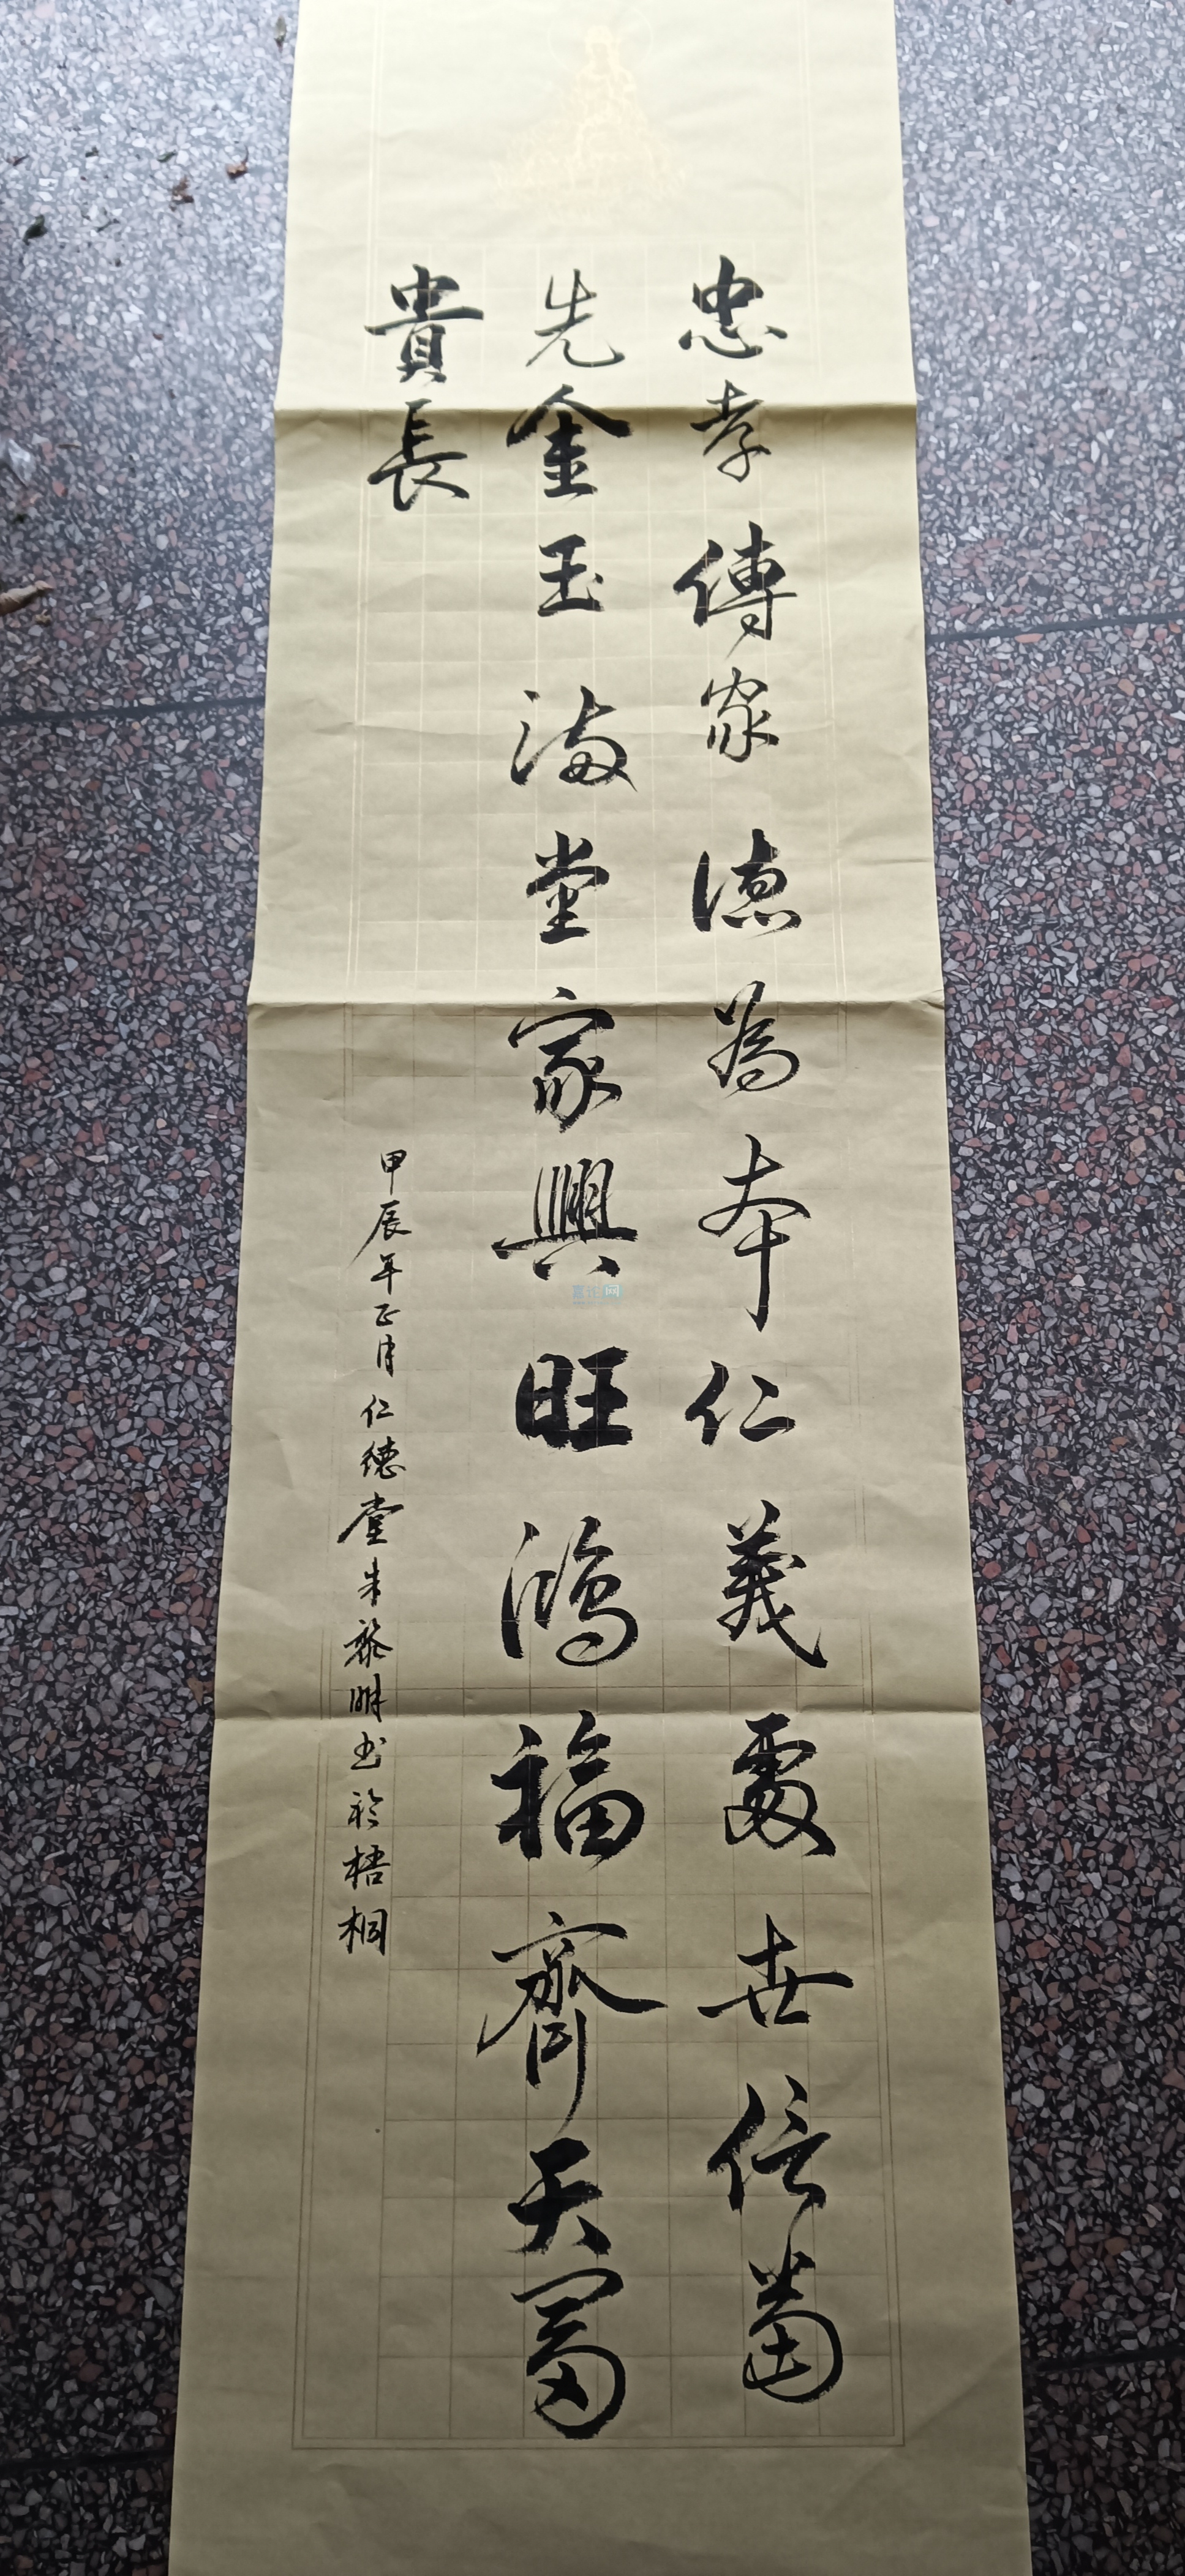 忠孝傳家德為本仁義處世信當
先金玉滿堂家興旺鴻福齊天富
貴長
甲辰年正月仁德堂朱黎明书於梧桐